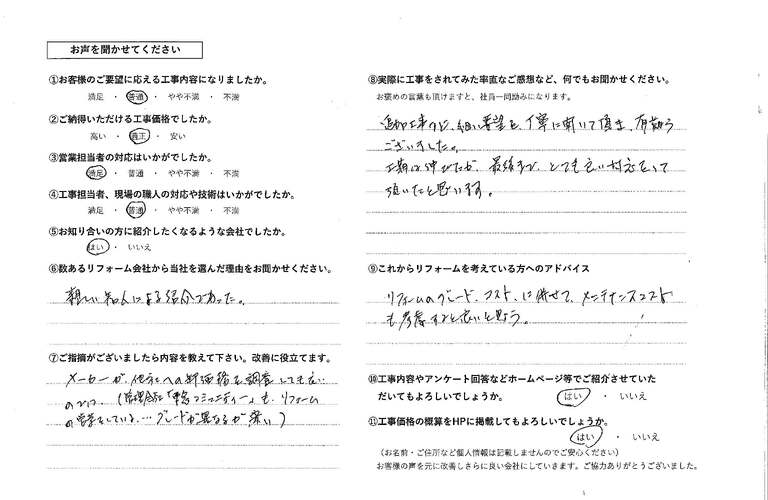 お声を聞かせてください
①お客様のご要望に応える工事内容になりましたか。
満足 ・ 普通 ・ やや不満 ・ 不満
②ご納得いただける工事価格でしたか。
高い ・ 適正 ・ 安い
③営業担当者の対応はいかがでしたか。
満足 ・ 普通 ・ やや不満 ・ 不満
④工事担当者、現場の職人の対応や技術はいかがでしたか。
満足 ・ 普通 ・ やや不満 ・ 不満
⑤お知り合いの方に紹介したくなるような会社でしたか。
はい ・ いいえ
⑥数あるリフォーム会社から当社を選んだ理由をお聞かせください。
親しい知人による紹介であった。
⑦ご指摘がございましたら内容を教えて下さい。改善に役立てます。
メーカーが、他社への卸価格を調査しても良い
のでは、(管理会社「コミュニティー」も、リフォーム
の営業をしている…グレードが異なるが安い)
⑧実際に工事をされてみた率直なご感想など、何でもお聞かせください。
お褒めの言葉も頂けますと、社員一同励みになります。
追加工事など、細い要望を、丁寧に聞いて頂き、有難う
ございました。
工期は伸びたが、最後まで、とても良い対応をして
頂いたと思います。
⑨これからリフォームを考えている方へのアドバイス
リフォームのグレード、コスト、に併せて、メンテナンスコスト
も考慮すると良いと思う。
⑩工事内容やアンケート回答などホームページ等でご紹介させていた
だいてもよろしいでしょうか。 はい ・ いいえ
⑪工事価格の概算をHPに掲載してもよろしいでしょうか。
はい ・ いいえ
(お名前・ご住所など個人情報は記載しませんのでご安心ください)
お客様の声を元に改善しさらに良い会社にしていきます。ご協力ありがとうございました。